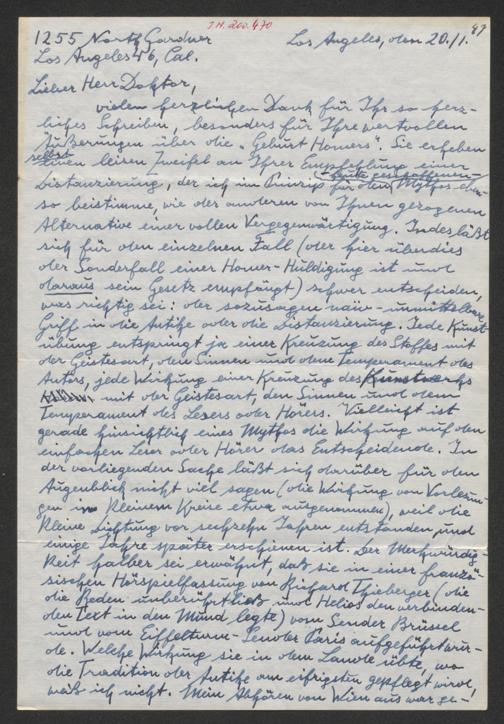 I.N. 200.470
47
1255 North Gardner
Los Angeles 46, Cal.
Los Angeles, den 20./1.
Lieber Herr Doktor,
vielen herzlichen Dank für Ihr so herz-
liches Schreiben, besonders für Ihre wertvollen
Äußerungen über die „Geburt Homers". Sie erheben
selbst
einen leisen Zweifel an Ihrer Empfehlung einer
(heute geschaffenen
Distanzierung, der ich im Prinzip für den Mythos eben-
so beistimme, wie der anderen von Ihnen gezogenen
Alternative einer vollen Vergegenwärtigung. Indes läßt
sich für den einzelnen Fall (der hier überdies
der Sonderfall einer Homer-Huldigung ist und
daraus sein Gesetz empfängt) schwer entscheiden,
was richtig sei: der sozusagen naiv-unmittelbare
Griff in die Antike oder die Distanzierung. Jede Kunst-
übung entspringt ja einer Kreuzung des Stoffes mit
der Geistesart, den Sinnen und dem Temperament des
Autors, jede Wirkung einer Kreuzung des Kunstwerks
mit der Geistesart, den Sinnen und dem
Temperament des Lesers oder Hörers. Vielleicht ist
gerade hinsichtlich eines Mythos die Wirkung auf den
einfachen Leser oder Hörer das Entscheidende. In
der vorliegenden Sache läßt sich darüber für den
Augenblick nicht viel sagen (die Wirkung von Vorlesun-
gen in kleinem Kreise etwa ausgenommen), weil die
kleine Dichtung vor sechzehn Jahren entstanden und
einige Jahre später erschienen ist. Der Merkwürdig-
keit halber sei erwähnt, daß sie in einer franzö-
sischen Hörspielfassung von Richard Thieberger (die
die Reden unberührt ließ und Helios den verbinden-
den Text in den Mund legte) vom Sender Brüssel
und vom Eiffelturm-Sender Paris aufgeführt wur-
de. Welche Wirkung sie in dem Lande übte, wo
die Tradition der Antike am eifrigsten gepflegt wird,
weiß ich nicht. Mein Abhören von Wien aus war ge-